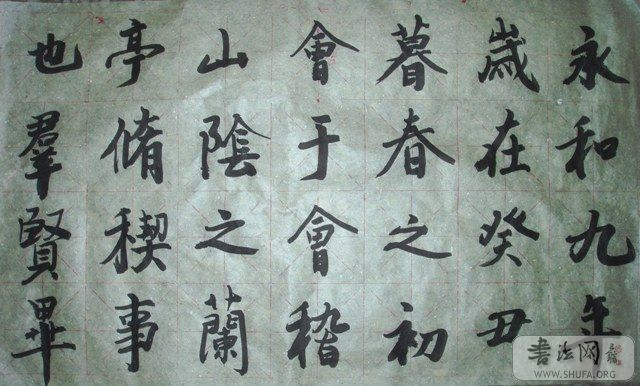 永和九年
歲在癸丑
暮春之初
會于會稽
山陰之蘭
亭脩稧事
也羣賢畢
書法网
WWW.SHUFA.ORG